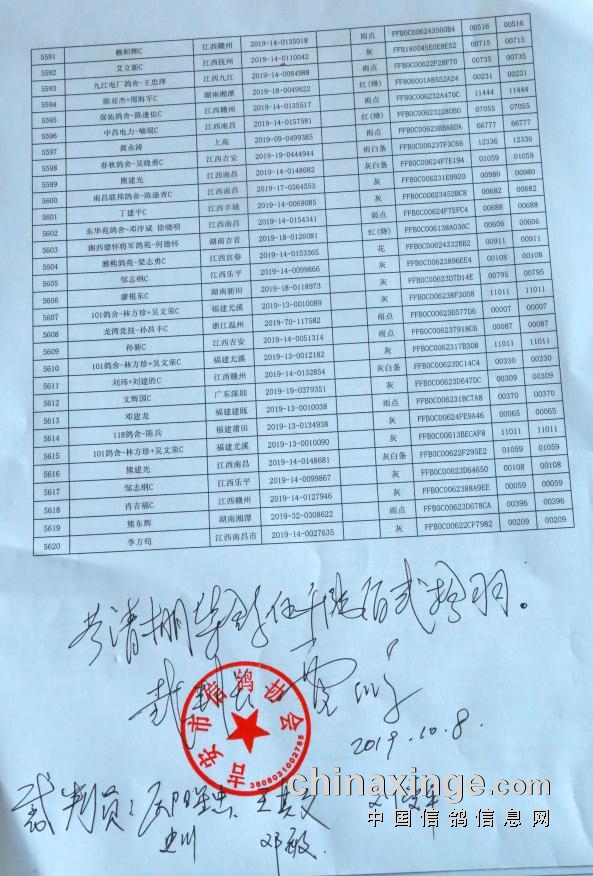 5591 赖积辉C 江西赣州 2019-14-0135018 雨点 FFB0C006243560B4 00516 00516
5592 艾立新C 江西抚州 2019-14-0110042 灰 FFB180045E0E8E52 00715 00715
5593 九江电厂鸽舍-王忠萍 江西九江 2019-14-0084988 雨点 FFB0C00622F28F70 00735 00735
5594 陈亚杰+周海军C 湖南湘潭 2019-18-0049622 红(绛) FF806001A8552A24 00231 00231
5595 保佑鸽舍-陈逢佑C 江西赣州 2019-14-0135517 雨点 FFB0C006232A470C 11444 11444
5596 中昌电力-喻琨C 江西南昌 2019-14-0157581 红(绛) FFB0C006232280B0 07055 07055
5597 黄永涛 上高 2019-09-0499385 雨点 FFB0C00623BBABDA 66777 66777
5598 春秋鸽舍-吴晓勇C 江西吉安 2019-19-0444944 雨白条 FFB0C006237F3C66 12336 12336
5599 熊建光 江西南昌 2019-14-0148682 灰白条 FFB0C00624F7E194 01059 01059
5600 南昌联邦鸽舍-陈涤青C 江西南昌 2019-17-0364553 灰 FFB0C006231E9920 00980 00980
5601 丁建平C 江西丰城 2019-14-0069085 灰 FFB0C00623452BC8 00682 00682
5602 东华苑鸽舍-邓序斌 徐晓明 江西南昌 2019-14-0154341 雨点 FFB0C00624F7EFC4 00688 00688
5603 湘西德怀将军鸽苑-何德怀 湖南吉首 2019-18-0126081 红(绛) FFB0C006138A036C 00606 00606
5604 雅熙鸽苑-梁志勇C 江西宜春 2019-14-0153365 花 FFB0C00624332BB2 00911 00911
5605 邹志纲C 江西乐平 2019-14-0099866 灰 FFB0C00623896EE4 00108 00108
5606 廖根东C 湖南新田 2019-18-0118973 灰 FFB0C00623D7D14E 00795 00795
5607 101鸽舍-林方珍+吴文荣C 福建尤溪 2019-13-0010089 灰 FFB0C006238F3008 11011 11011
5608 龙湾竞技-孙昌丰C 浙江温州 2019-70-117582 雨点 FFB0C00623D577D6 00007 00007
5609 孙新C 江西吉安 2019-14-0051314 雨点 FFB0C006237918C6 00087 00087
5610 101鸽舍-林方珍+吴文荣C 福建尤溪 2019-13-0012182 灰 FFB0C0062317B308 11011 11011
5611 刘玮+刘建胜C 江西赣州 2019-14-0132854 灰白条 FFB0C00623DC14C4 00330 00330
5612 文辉国C 广东深圳 2019-19-0379351 灰 FFB0C00623D647DC 00309 00309
5613 邓建龙 福建建瓯 2019-13-0010038 雨点 FFB0C006231BC7A8 00370 00370
5614 118鸽舍-陈兵 福建莆田 2019-13-0134938 灰 FFB0C00624FE9A46 00065 00065
5615 101鸽舍-林方珍+吴文荣C 福建尤溪 2019-13-0010090 灰 FFB0C00613BECAF8 11011 11011
5616 熊建光 江西南昌 2019-14-0148681 灰白条 FFB0C00622F295E2 01059 01059
5617 邹志纲C 江西乐平 2019-14-0099867 灰 FFB0C00623D64650 00108 00108
5618 肖吉福C 江西赣州 2019-14-0127946 灰 FFB0C0062388A9EE 00059 00059
5619 熊东辉 湖南湘潭 2019-32-0308622 雨点 FFB0C00623D678CA 00396 00396
5620 李方荀 江西南昌市 2019-14-0027635 灰 FFB0C00622CF7982 00209 00209
清棚 伍千陆佰贰拾羽。
裁判长
吉安市信鸽协会
3608031002785
2019.10.8.
裁判员：
邓敏
chinaxinge.com
中国信鸽信息网